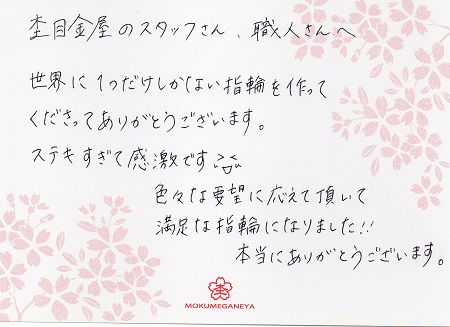 杢目金屋のスタッフさん、職人さんへ
世界に1つだけしかない指輪を作って
くださってありがとうございます。
ステキすぎて感激です
色々な要望に応えて頂いて
満足な指輪になりました!!
本当にありがとうございます。
MOKUMEGANEYA